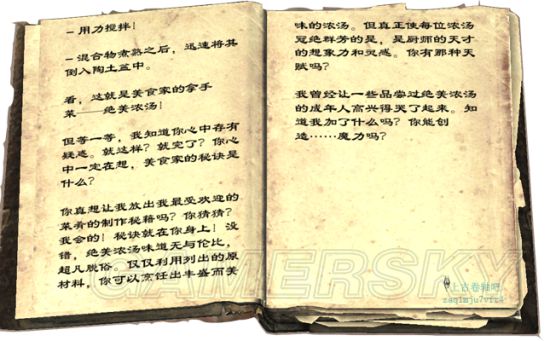 - 用力搅拌！
- 混合物煮熟之后，迅速将其
倒入陶土盆中。
看，这就是美食家的拿手
菜——绝美浓汤！
但等一等，我知道你心中存有
疑惑。就这样？就完了？你心
中一定在想，美食家的秘诀是
什么？
你真想让我放出我最受欢迎的
菜肴的制作秘籍吗？你猜猜？
我会的！秘诀就在你身上！没
错，绝美浓汤味道无与伦比，
超凡脱俗。仅仅利用列出的原
材料，你可以烹饪出丰盛而美
味的浓汤。但真正使每位浓汤
冠绝群芳的是，是厨师的天才
的想象力和灵感。你有那种天
赋吗？
我曾经让一些品尝过绝美浓汤
的成年人高兴得哭了起来。知
道我加了什么吗？你能创
造……魔力吗？
GAMERSKY
上古卷轴吧
zaqimju7vfr4